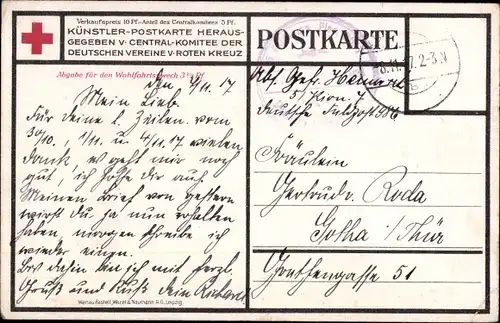 Verkaufspreis 10 Pf.-Anteil des Centralkomitees 5 Pf.
KÜNSTLER-POSTKARTE HERAUS-
GEGEBEN V· CENTRAL-KOMITEE DER
DEUTSCHEN VEREINE V· ROTEN KREUZ
Abgabe für den Wohlfahrtszweck 3½ Pf.
POSTKARTE
8.11.17. 2-3 N
11.17
Mein Lieb.
Für deine l. Zeilen vom
30/10., 1/11. u. 4/11.17 vielen
Dank. Es geht mir noch
gut, ich hoffe dir auch.
Meinen Brief von gestern
wirst Du ja nun erhalten
haben, morgen schreibe ich
wieder einen.
Bis dahin bin ich mit herzl.
Gruß und Kuß Dein Richard
Abs. Gefr.
Deutsche Feldpost 986
Fräulein
Gertrude Roda
Gotha i/Thür
51
Werkaufsstell. Wezel & Naumann A.G. Leipzig.